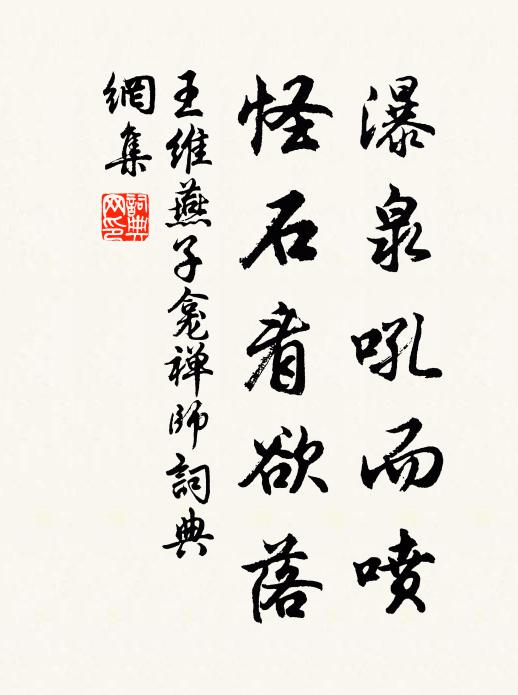 瀑泉吼而噴
怪石看欲落
王維燕子龛禅師詞典
網集
詞典
网印